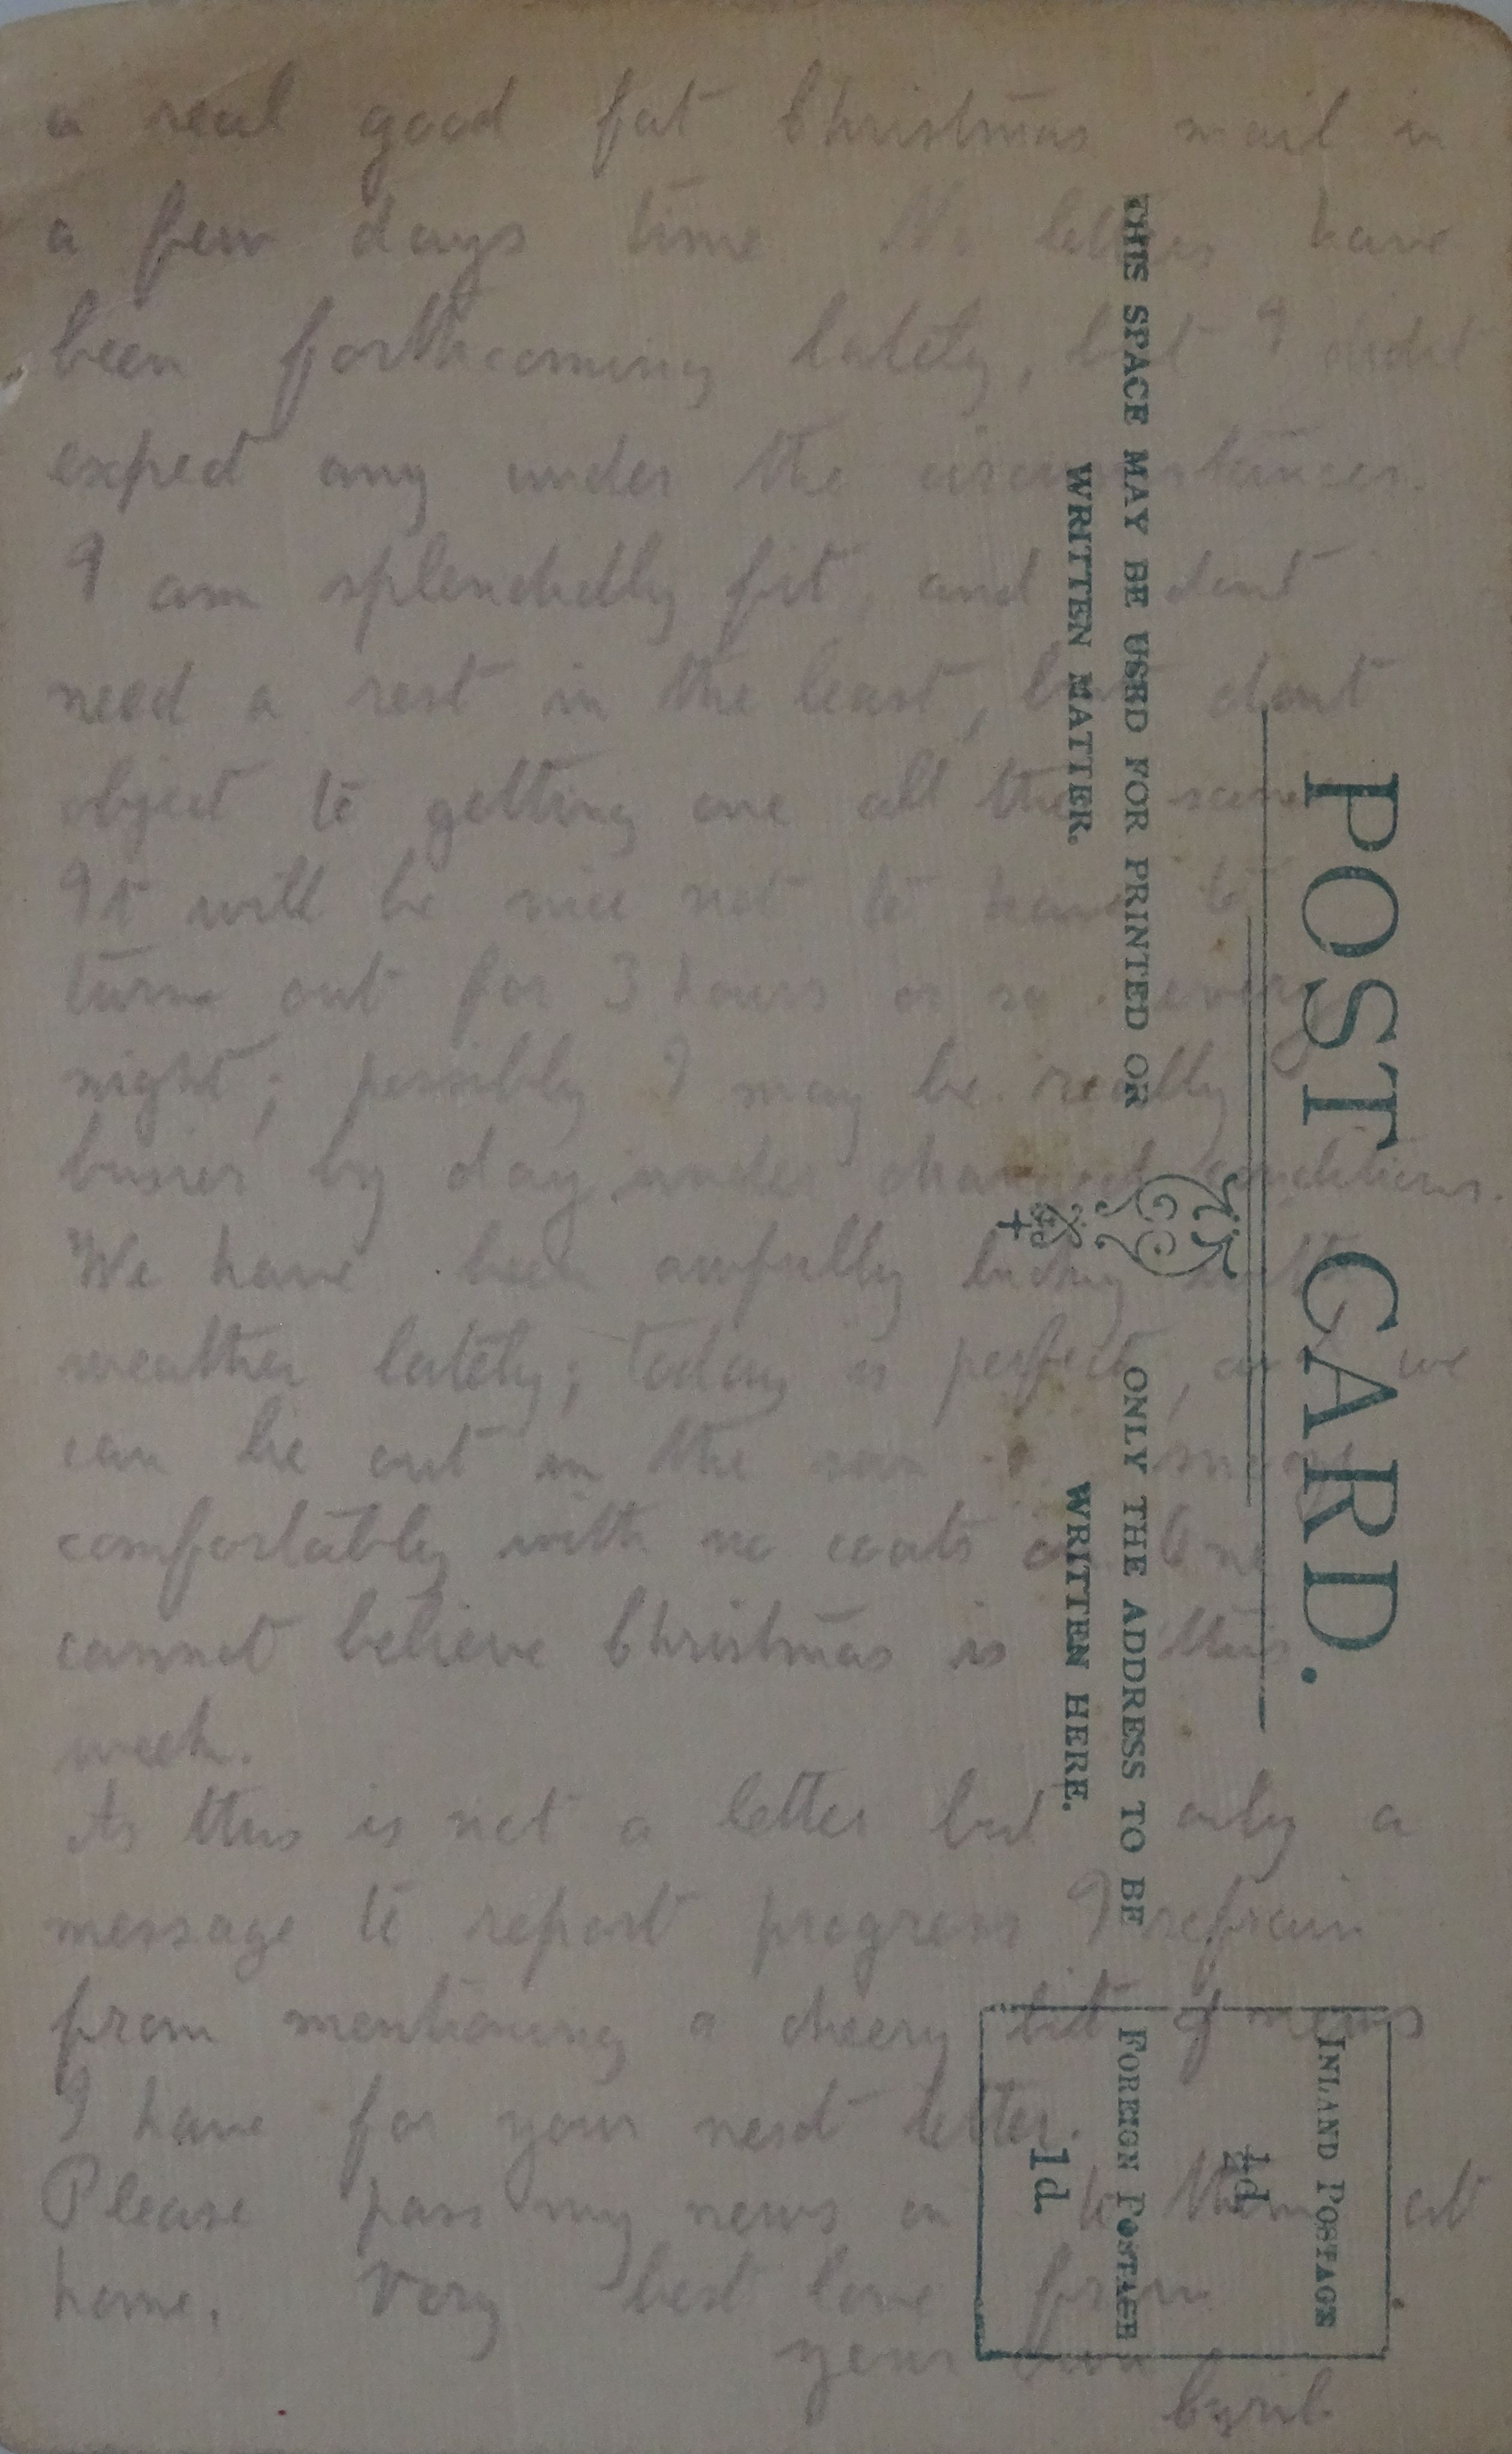 a real good fat Christmas mail in
a few days time No letters have
been forthcoming lately, but I didnt
expect any under the circumstances.
I am splendidly fit, and dont
need a rest in the least, but dont
object to getting one all the same
It will be nice not to have to
turn out for 3 hours or so every
night; possibly I may be really
busier by day under changed conditions.
We have been awfully lucky with
weather lately; today is perfect, and we
can be out in the
comfortably with no coats on. One
cannot believe Christmas is this
week.
As this is not a letter but only a
message to report progress I refrain
from mentioning a cheery bit of news
I have for your next letter.
Please pass my news on to them at
home. Very best love from
your own
Cyril
POST CARD.
THIS SPACE MAY BE USED FOR PRINTED OR
WRITTEN MATTER.
ONLY THE ADDRESS TO BE
WRITTEN HERE.
INLAND POSTAGE
½d.
FOREIGN POSTAGE
1d.